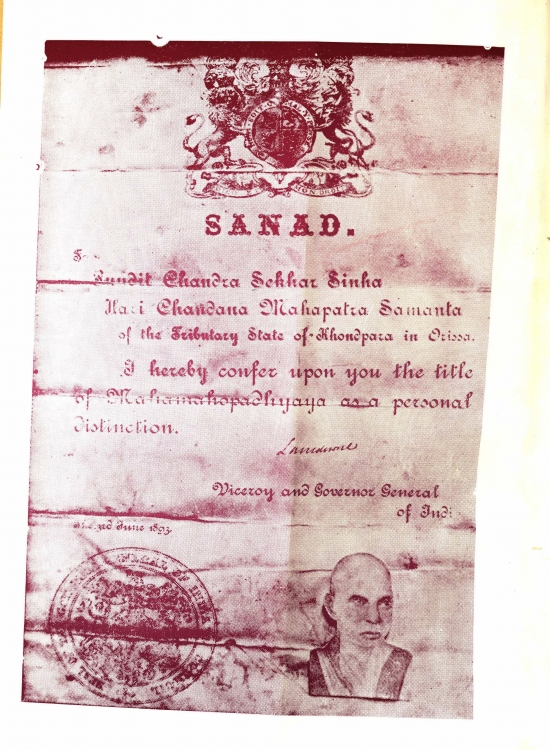 SANAD.
Pundit Chandra Sekhar Sinha
Hari Chandana Mahapatra Samanta
of the Tributary State of Khondpara in Orissa.
I hereby confer upon you the title
of Mahamahopadhyaya as a personal
distinction.
Lansdowne
Viceroy and Governor General
of Indi
3rd June 1893